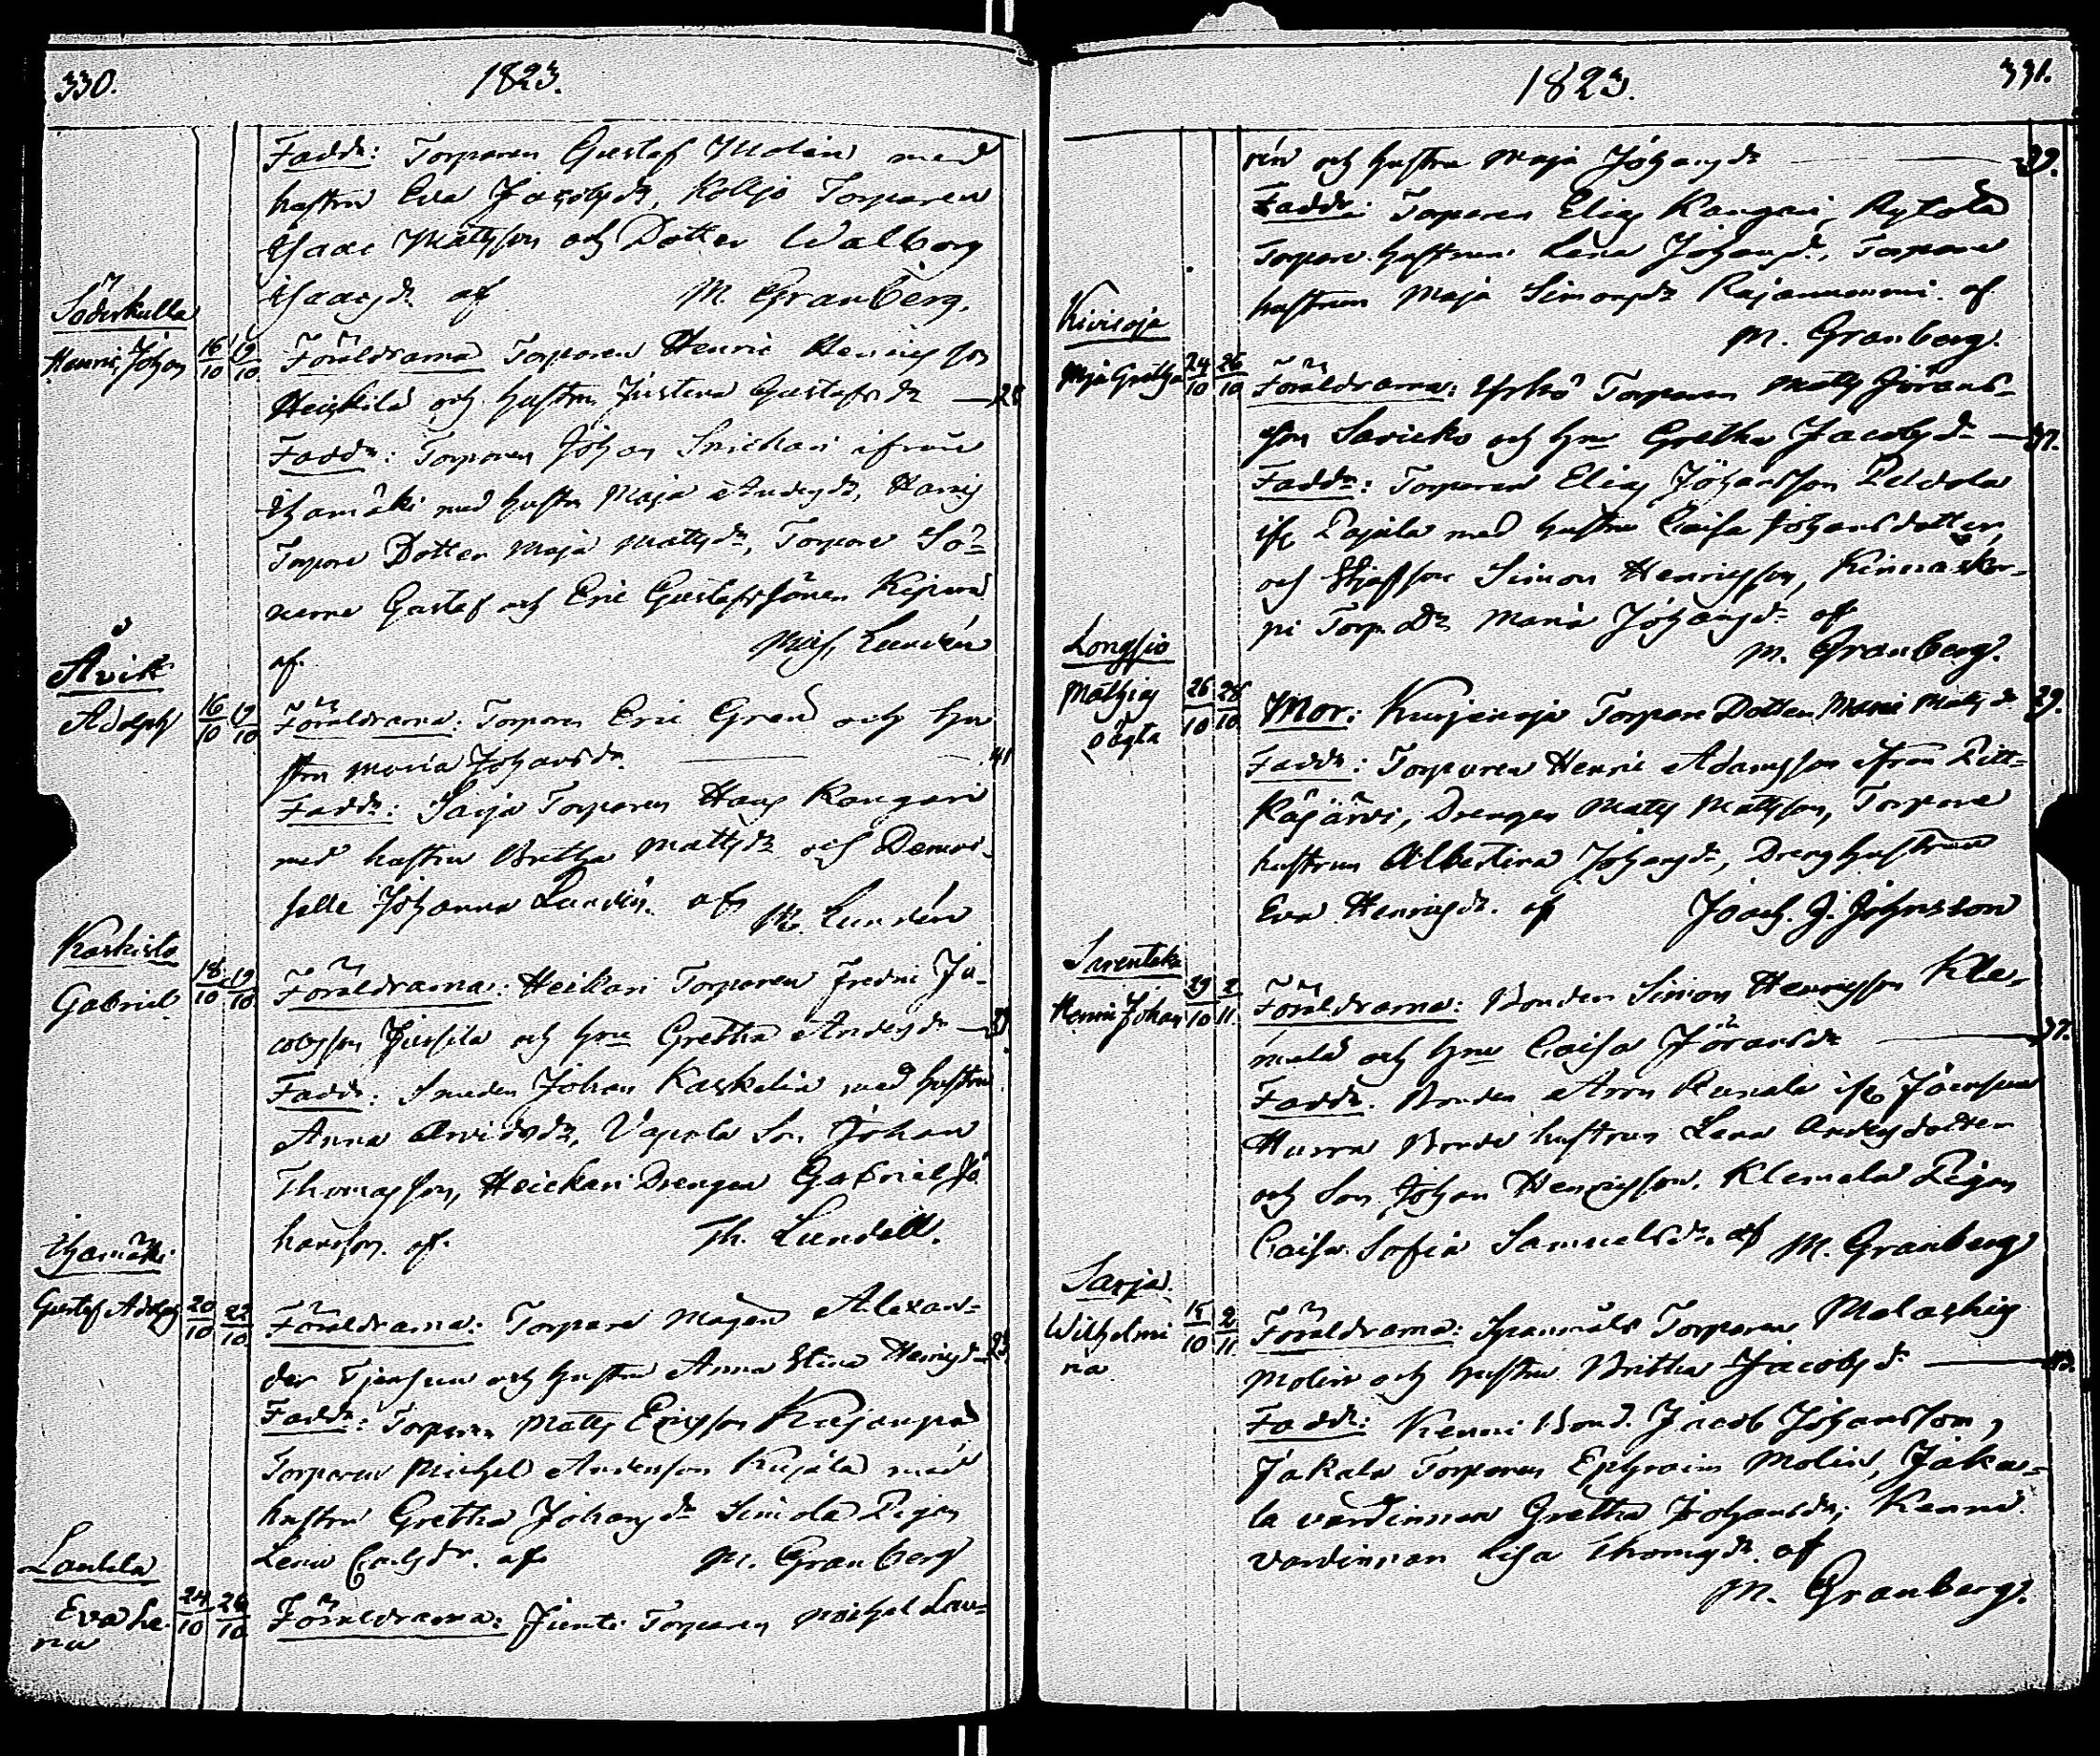 330.
1823.
Fadd: Torparen Gustaf Molin med
hustru Eva Jacobsdr, Torparen
Isaac Mattsson och Dotter Walborg
Isaacsdr af M. Granberg.
Söderkulla
Henric Johan 16/10 19/10 Föräldrarna Torparen Henric Henricsson
Heickilä och hustru Justina Gustafsdr 28
Fadd: Torparen Johan Snickari ifrån
Ihamäki med hustru Maja Andersdr,
Torpare Dotter Maja Mattsdr, Torpare Sö-
nerne Gustaf och Eric Gustafssöner
af Lundén
Åvik
Adolph 16/10 19/10 Föräldrarna: Torparen Eric Gren och hu-
stru Maria Johansdr. 41
Fadd: Sarja Torparen Hans Kangari
med hustru Britha Mattsdr och Demoi-
selle Johanna Lundén. af M. Lundén
Kaskisto
Gabriel 18/10 19/10 Föräldrarna: Heikari Torparen Fredric Ja-
cobsson Jussila och hru Gretha Andersdr
Fadd: Smeden Johan Kaskelin med hustru
Anna Arvidsdr, Vapola Son Johan
Thomasson, Heickari Drengen Gabriel Jo-
hansson. af Th. Lundell.
Ihamäki
Gustaf Adolph 20/10 22/10 Föräldrarna: Torpare Mågen Alexan-
der och hustru Anna Stina Henricsdr 23
Fadd: Torparen Matts Ericsson Kujanpää
Torparen Michel Andersson Kujala med
hustru Gretha Johansdr Simola Pigan
Lena Carlsdr. af M. Granberg
Laukila
Eva Le- 24/10 26/10 Föräldrarna: Torparen Michel Lau-
na
331.
1823.
rén och hustru Maja Johansdr 39.
Fadd: Torparen Elias Kangari, Rytola
Torpare hustrun Lena Johansdr, Torpare
hustrun Maja Simonsdr Rajanummi. af
M. Granberg.
Kivioja
Maja Gretha 24/10 26/10 Föräldrarna: Yrkö Torparen Matts Jörans-
son Savicko och hru Gretha Jacobsdr 37.
Fadd: Torparen Elias Johansson Peldola
ifr Pajula med hustru Caisa Johansdotter,
och Styfson Simon Henricsson, Kinnaskor-
pi Torp. Dr Maria Johansdr af
M. Granberg.
Longsjö
Mathias 26/10 28/10 Mor: Kurjenoja Torpare Dotter Maria Mattsdr 29.
oägta
Fadd: Torparen Henric Adamsson ifrån Pitt-
käjärvi, Drengen Matts Mattsson, Torpare
hustrun Albertina Johansdr, Dreng hustrun
Eva Henricsdr. af Joach. J. Johnsson
Sarentaka
Henric Johan 29/10 2/11. Föräldrarna: Bonden Simon Henricsson Kle-
mela och hru Caisa Jöransdr 37.
Fadd: Bonden Aron Runala ifr Jöensuu
Hurra Bonde hustrun Lena Andersdotter
och Son Johan Henricsson, Klemela Pigan
Caisa Sofia Samuelsdr. af M. Granberg
Sarja.
Wilhelmi- 15/10 2/11 Föräldrarna: Torparen Malachias
na
Molin och hustru Britha Jacobsdr
Fadd: Kenni Bond. Jacob Johansson,
Jakala Torparen Ephraim Molin, Jaka-
la värdinnan Gretha Johansdr, Kenni
värdinnan Lisa Thomsdr. af
M. Granberg.